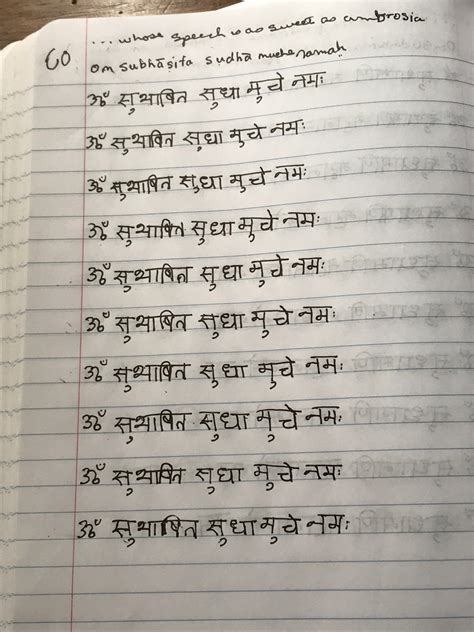 60 ... whose speech is as sweet as ambrosia
om subhāṣita sudhā muche namaḥ
ॐ सुभाषित सुधा मुचे नमः
ॐ सुभाषित सुधा मुचे नमः
ॐ सुभाषित सुधा मुचे नमः
ॐ सुभाषित सुधा मुचे नमः
ॐ सुभाषित सुधा मुचे नमः
ॐ सुभाषित सुधा मुचे नमः
ॐ सुभाषित सुधा मुचे नमः
ॐ सुभाषित सुधा मुचे नमः
ॐ सुभाषित सुधा मुचे नमः
ॐ सुभाषित सुधा मुचे नमः